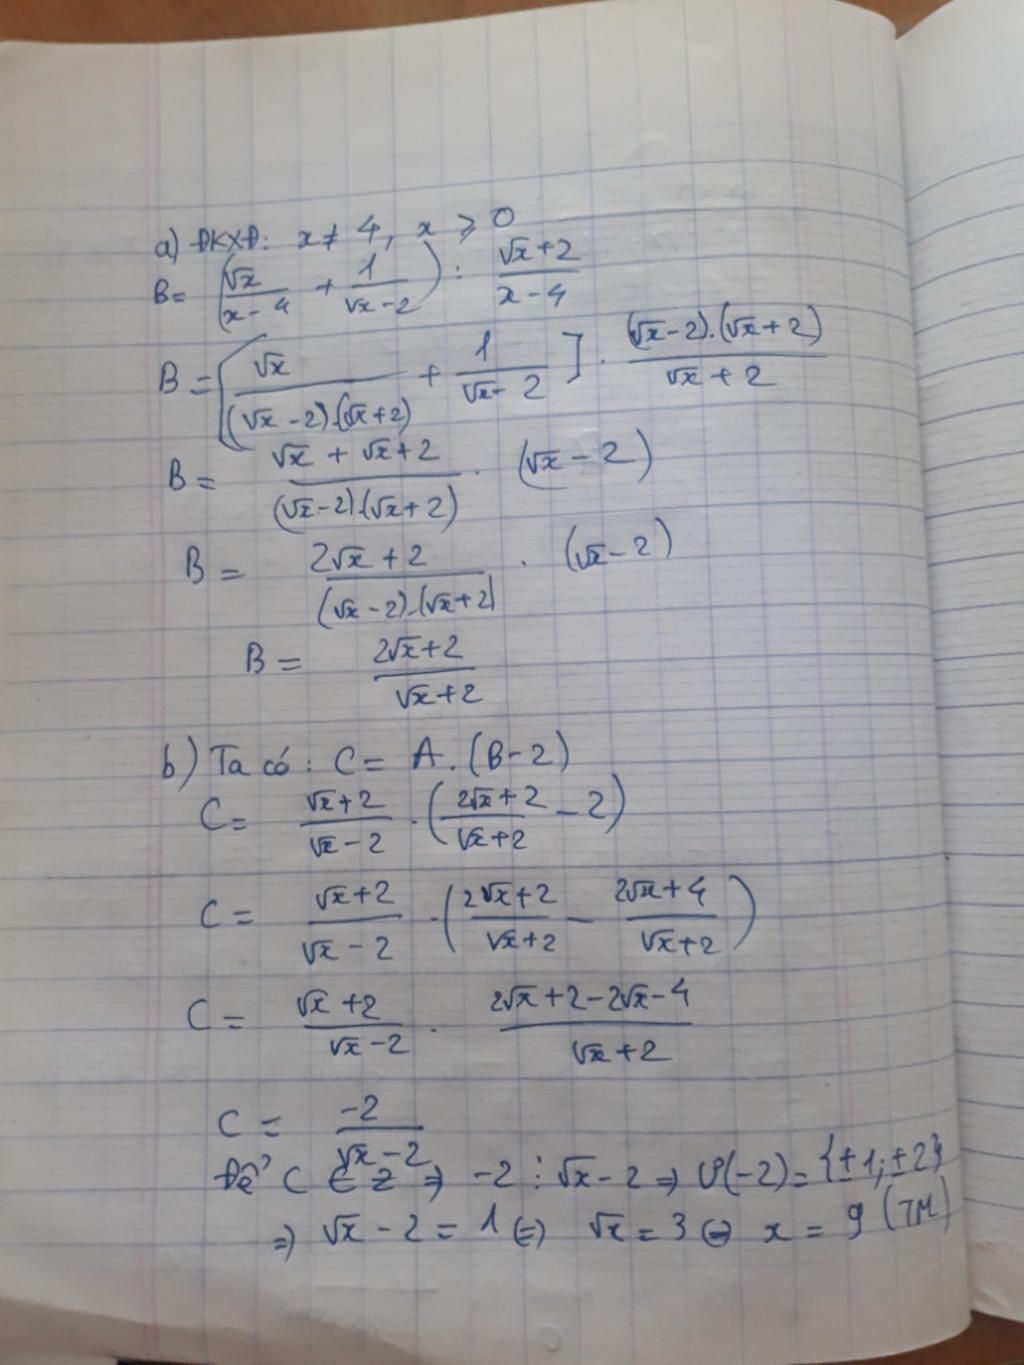 a) ĐKXĐ: x ≠ 4, x ⩾ 0
B = (√x/(x-4) + 1/(√x-2)) : (√x+2)/(x-4)
B = [√x/((√x-2).(√x+2)) + 1/(√x-2)] . ((√x-2).(√x+2))/(√x+2)
B = (√x+√x+2)/((√x-2).(√x+2)) . (√x-2)
B = (2√x+2)/((√x-2).(√x+2)) . (√x-2)
B = (2√x+2)/(√x+2)
b) Ta có: C = A.(B-2)
C = (√x+2)/(√x-2) . ((2√x+2)/(√x+2) - 2)
C = (√x+2)/(√x-2) . ((2√x+2)/(√x+2) - (2√x+4)/(√x+2))
C = (√x+2)/(√x-2) . (2√x+2-2√x-4)/(√x+2)
C = -2/(√x-2)
Để C ∈ Z ⇒ -2 ⋮ √x-2 ⇒ Ư(-2) = {±1; ±2}
⇒ √x-2 = 1 ⇔ √x = 3 ⇔ x = 9 (TM)